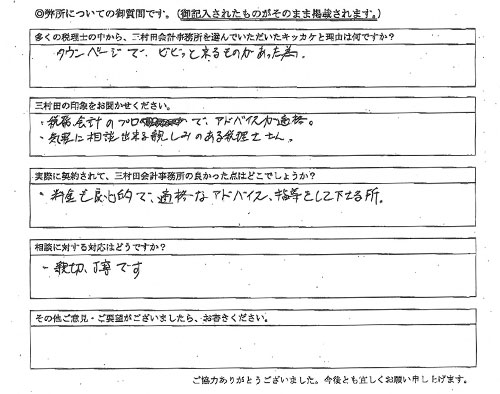 ◎弊所についての御質問です。（御記入されたものがそのまま掲載されます。）
多くの税理士の中から、三村田会計事務所を選んでいただいたキッカケと理由は何ですか？
タウンページで、ビビッと来るものがあった為。
三村田の印象をお聞かせください。
・税務会計のプロで、アドバイスが適格。
・気軽に相談出来る親しみのある税理士さん。
実際に契約されて、三村田会計事務所の良かった点はどこでしょうか？
・料金も良心的で、適格なアドバイス、指導をして下さる所。
相談に対する対応はどうですか？
・親切、丁寧です
その他ご意見・ご要望がございましたら、お書きください。
ご協力ありがとうございました。今後とも宜しくお願い申し上げます。